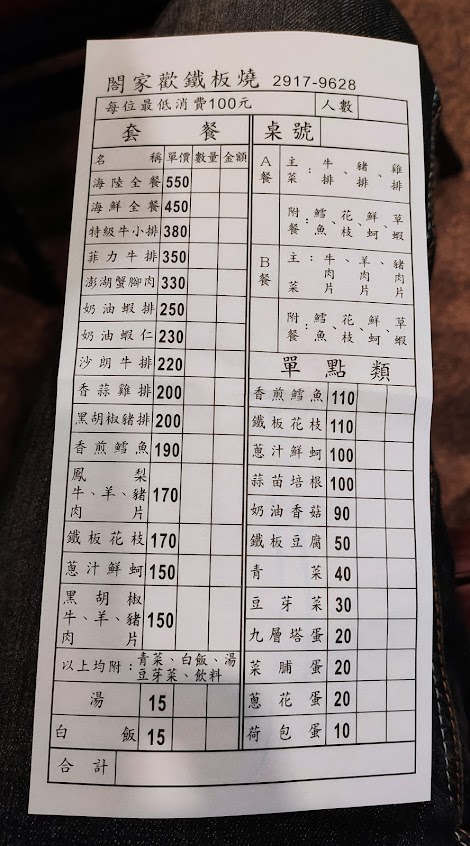 閤家歡鐵板燒 2917-9628
每位最低消費100元 人數
套餐
名稱 單價 數量 金額
海陸全餐 550
海鮮全餐 450
特級牛小排 380
菲力牛排 350
澎湖蟹腳肉 330
奶油蝦排 250
奶油蝦仁 230
沙朗牛排 220
香蒜雞排 200
黑胡椒豬排 200
香煎鱈魚 190
鳳梨
牛、羊、豬 170
肉片
鐵板花枝 170
蔥汁鮮蚵 150
黑胡椒
牛、羊、豬 150
肉片
以上均附：青菜、白飯、湯
豆芽菜、飲料
湯 15
白飯 15
合計
桌號
A餐 主菜：牛排、豬排、雞排
附餐：鱈魚、花枝、鮮蚵、草蝦
B餐 主菜：牛肉片、羊肉片、豬肉片
附餐：鱈魚、花枝、鮮蚵、草蝦
單點類
香煎鱈魚 110
鐵板花枝 110
蔥汁鮮蚵 100
蒜苗培根 100
奶油香菇 90
鐵板豆腐 50
青菜 40
豆芽菜 30
九層塔蛋 20
菜脯蛋 20
蔥花蛋 20
荷包蛋 10